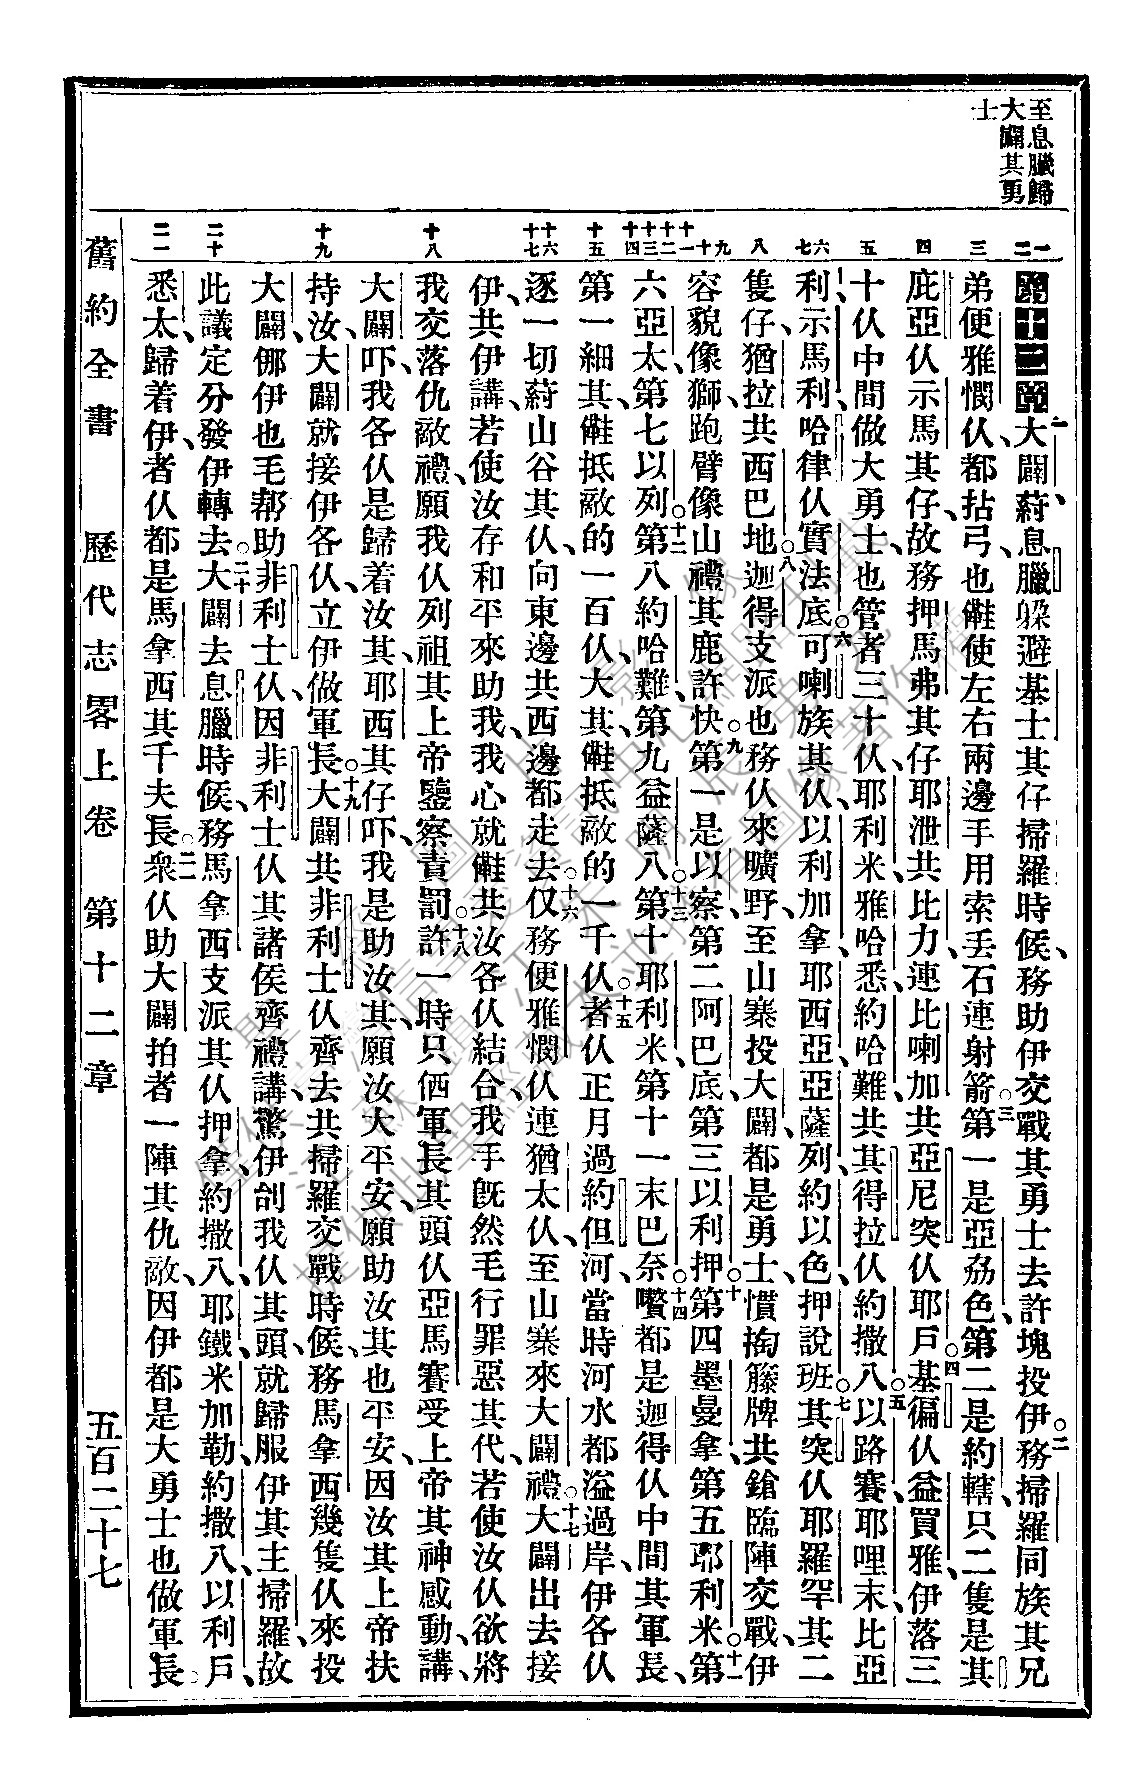 至息臘歸
大闢其勇
士
一 二 三 四 五 六 七 八 九 十 十一 十二 十三 十四 十五 十六 十七 十八 十九 二十 二一
第十二章 一 大闢蒔息臘躱避基士其仔掃羅時候、務助伊交戰其勇士去許塊投伊。二 務掃羅同族其兄
弟便雅憫仈、都拈弓、也𠆧使左右兩邊手用索丟石連射箭。三 第一是亞劦色、第二是約轄、只二隻是其
庇亞仈示馬其仔、故務押馬弗其仔耶泄共比力、連比喇加共亞尼突仈耶戶。四 基徧仈益買雅、伊落三
十仈中間做大勇士、也管者三十仈、耶利米雅哈悉約哈難共其得拉仈約撒八、五 以路賽耶哩末比亞
利、示馬利、哈律仈實法底。六 可喇族其仈、以利加拿、耶西亞、亞薩列、約以色、押說班。七 其突仈耶羅罕其二
隻仔、猶拉共西巴地。八 迦得支派也務仈來曠野、至山寨投大闢、都是勇士、慣掏籐牌共鎗臨陣交戰、伊
容貌像獅、跑臂像山禮其鹿許快。九 第一是以察、第二阿巴底、第三以利押。十 第四墨曼拿、第五耶利米。十一 第
六亞太、第七以列。十二 第八約哈難、第九益薩八。十三 第十耶利米、第十一末巴奈。十四 嚽都是迦得仈中間其軍長、
第一細其、𠆧抵敵的一百仈、大其、𠆧抵敵的一千仈。十五 者仈正月過約但河、當時河水都溢過岸、伊各仈
逐一切蒔山谷其仈、向東邊共西邊都走去。十六 仅務便雅憫仈連猶太仈、至山寨來大闢禮。十七 大闢出去接
伊、共伊講、若使汝存和平來助我、我心就𠆧共汝各仈結合、我手旣然毛行罪惡其代、若使汝仈欲將
我交落仇敵禮、願我仈列祖其上帝鑒察責罰。十八 許一時只伵軍長其頭仈亞馬賽受上帝其神感動、講、
大闢吓、我各仈是歸着汝其、耶西其仔吓、我是助汝其、願汝大平安、願助汝其也平安、因汝其上帝扶
持汝、大闢就接伊各仈、立伊做軍長。十九 大闢共非利士仈齊去共掃羅交戰時候、務馬拿西幾隻仈來投
大闢、㑚伊也毛帮助非利士仈、因非利士仈其諸侯齊禮講、驚伊刣我仈其頭、就歸服伊其主掃羅、故
此議定分發伊轉去。二十 大闢去息臘時候、務馬拿西支派其仈押拿、約撒八、耶鐵、米加勒、約撒八、以利戶、
悉太歸着伊、者仈都是馬拿西其千夫長。二一 衆仈助大闢拍者一陣其仇敵、因伊都是大勇士、也做軍長
舊約全書 歷代志畧上卷 第十二章 五百二十七